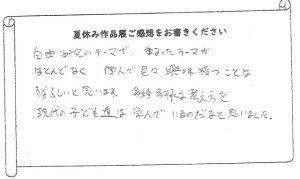 夏休み作品展ご感想をお書きください
自由研究のテーマで、集まったテーマが
ほとんどなく 個人で色々興味持つことは
すばらしいと思います 多種多様な考え方を
現代の子ども達は学んでいるのだなと思いました。